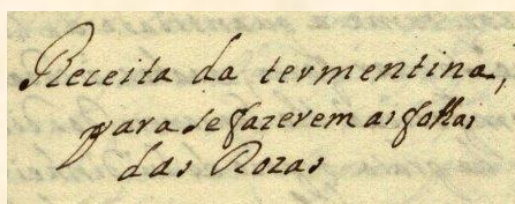 Receita da termentina,
para se fazerem as folhas
das Rozas